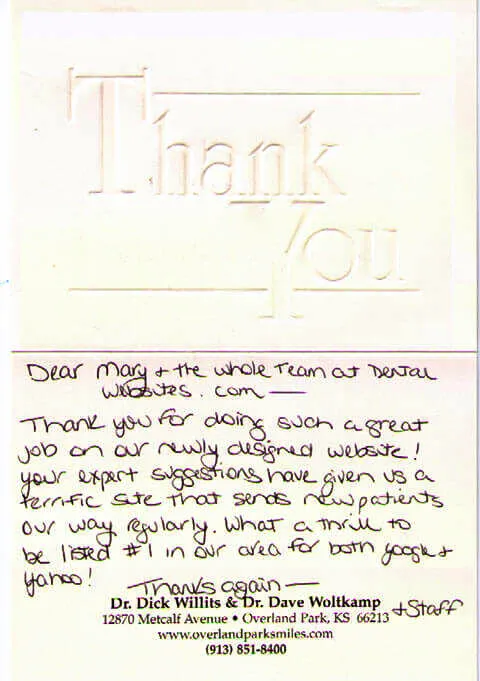 Thank
You
Dear Mary + the whole Team at Dental
Websites.com —
Thank you for doing such a great
job on our newly designed website!
your expert suggestions have given us a
terrific site that sends new patients
our way regularly. What a thrill to
be listed #1 in our area for both google +
yahoo!
Thanks again —
Dr. Dick Willits & Dr. Dave Woltkamp
+ Staff
12870 Metcalf Avenue • Overland Park, KS 66213
www.overlandparksmiles.com
(913) 851-8400